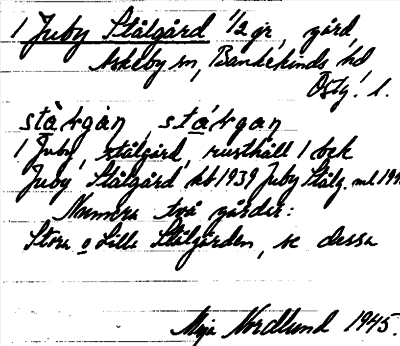 1 Juby Stålgård 1/2 gr, gård,
Askeby sn, Bankekinds hd
Östg. l.
stà̀rgàn, stárgan
1 Juby, stålgård, rusthåll 1 bok
Juby Stålgård kb 1939 Juby Stålg. ml 194
Numera två gårdar:
Stora o Lilla Stålgården, se dessa
Maja Nordlund 1945.